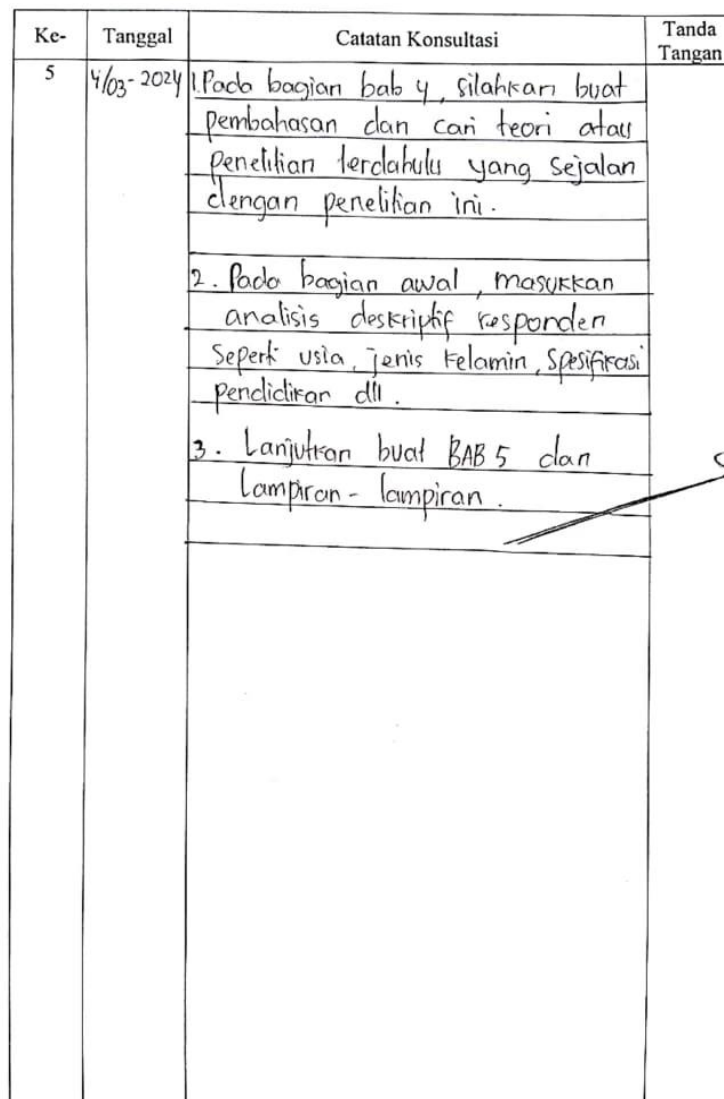 Ke- Tanggal Catatan Konsultasi Tanda Tangan
5 4/03-2024 1. Pada bagian bab 4, silahkan buat
pembahasan dan cari teori atau
penelitian terdahulu yang sejalan
dengan penelitian ini.
2. Pada bagian awal, masukkan
analisis deskriptif responden
Seperti usia, jenis kelamin, Spesifikasi
pendidikan dll.
3. Lanjutkan buat BAB 5 dan
Lampiran-lampiran.